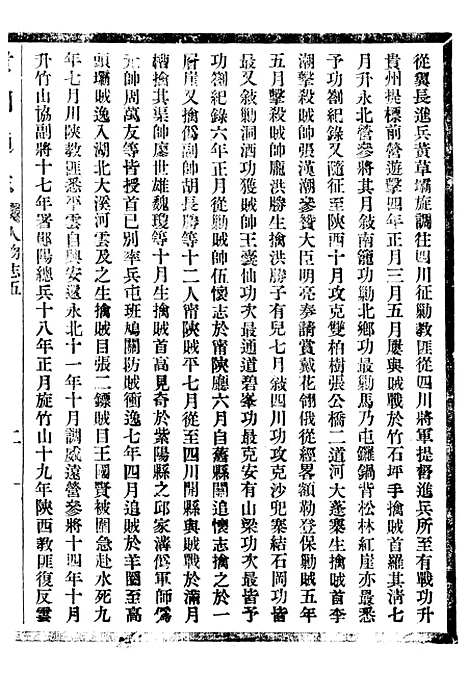 從翼長進兵黃草壩旋調往四川征勦教匪從四川將軍提督進兵所至有戰功升
貴州提標前營遊擊四年正月三月五月屢與賊戰於竹石坪手擒賊首羅其淸七
月升永北營參將其月敍南籠功勦北鄉功最勦馬乃屯鑼鍋背松林紅崖亦最悉
予功劄紀錄又隨征至陝西十月攻克雙柏樹張公橋二道河大蓬寨生擒賊首李
潮擊殺賊帥張漢潮參贊大臣明亮奏請賞戴花翎俄從經畧額勒登保勦賊五年
五月擊殺賊帥龐洪勝生擒洪勝子有兒七月敍四川功攻克沙兜寨結石岡功皆
最又敍勦洞洒功獲賊帥王囊仙功次最通道碧峯功最克安有山梁功次最皆予
功劄紀錄六年正月從勦賊帥伍懷志於甯陝廳六月自舊縣關追懷志擒之於一
盾崖又擒僞副帥胡長勝等十二人甯陝賊平七月從至四川開縣與賊戰於滿月
槽擒其渠帥廖世雄魏瓊等十月生擒賊首高見奇於紫陽縣之邱家溝僞軍師僞
元帥周萬友等皆授首已別率兵屯班鳩關防賊衝逸七年四月追賊於羊圈至高
頭壩賊逸入湖北大溪河雲及之生擒賊目張二鏢賊目王國賢被圍急赴水死九
年七月川陝敎匪悉平雲自興安還永北十一年十月調威遠營參將十四年十月
升竹山協副將十七年署鄖陽總兵十八年正月旋竹山十九年陝西教匪復反雲
人物志五
二